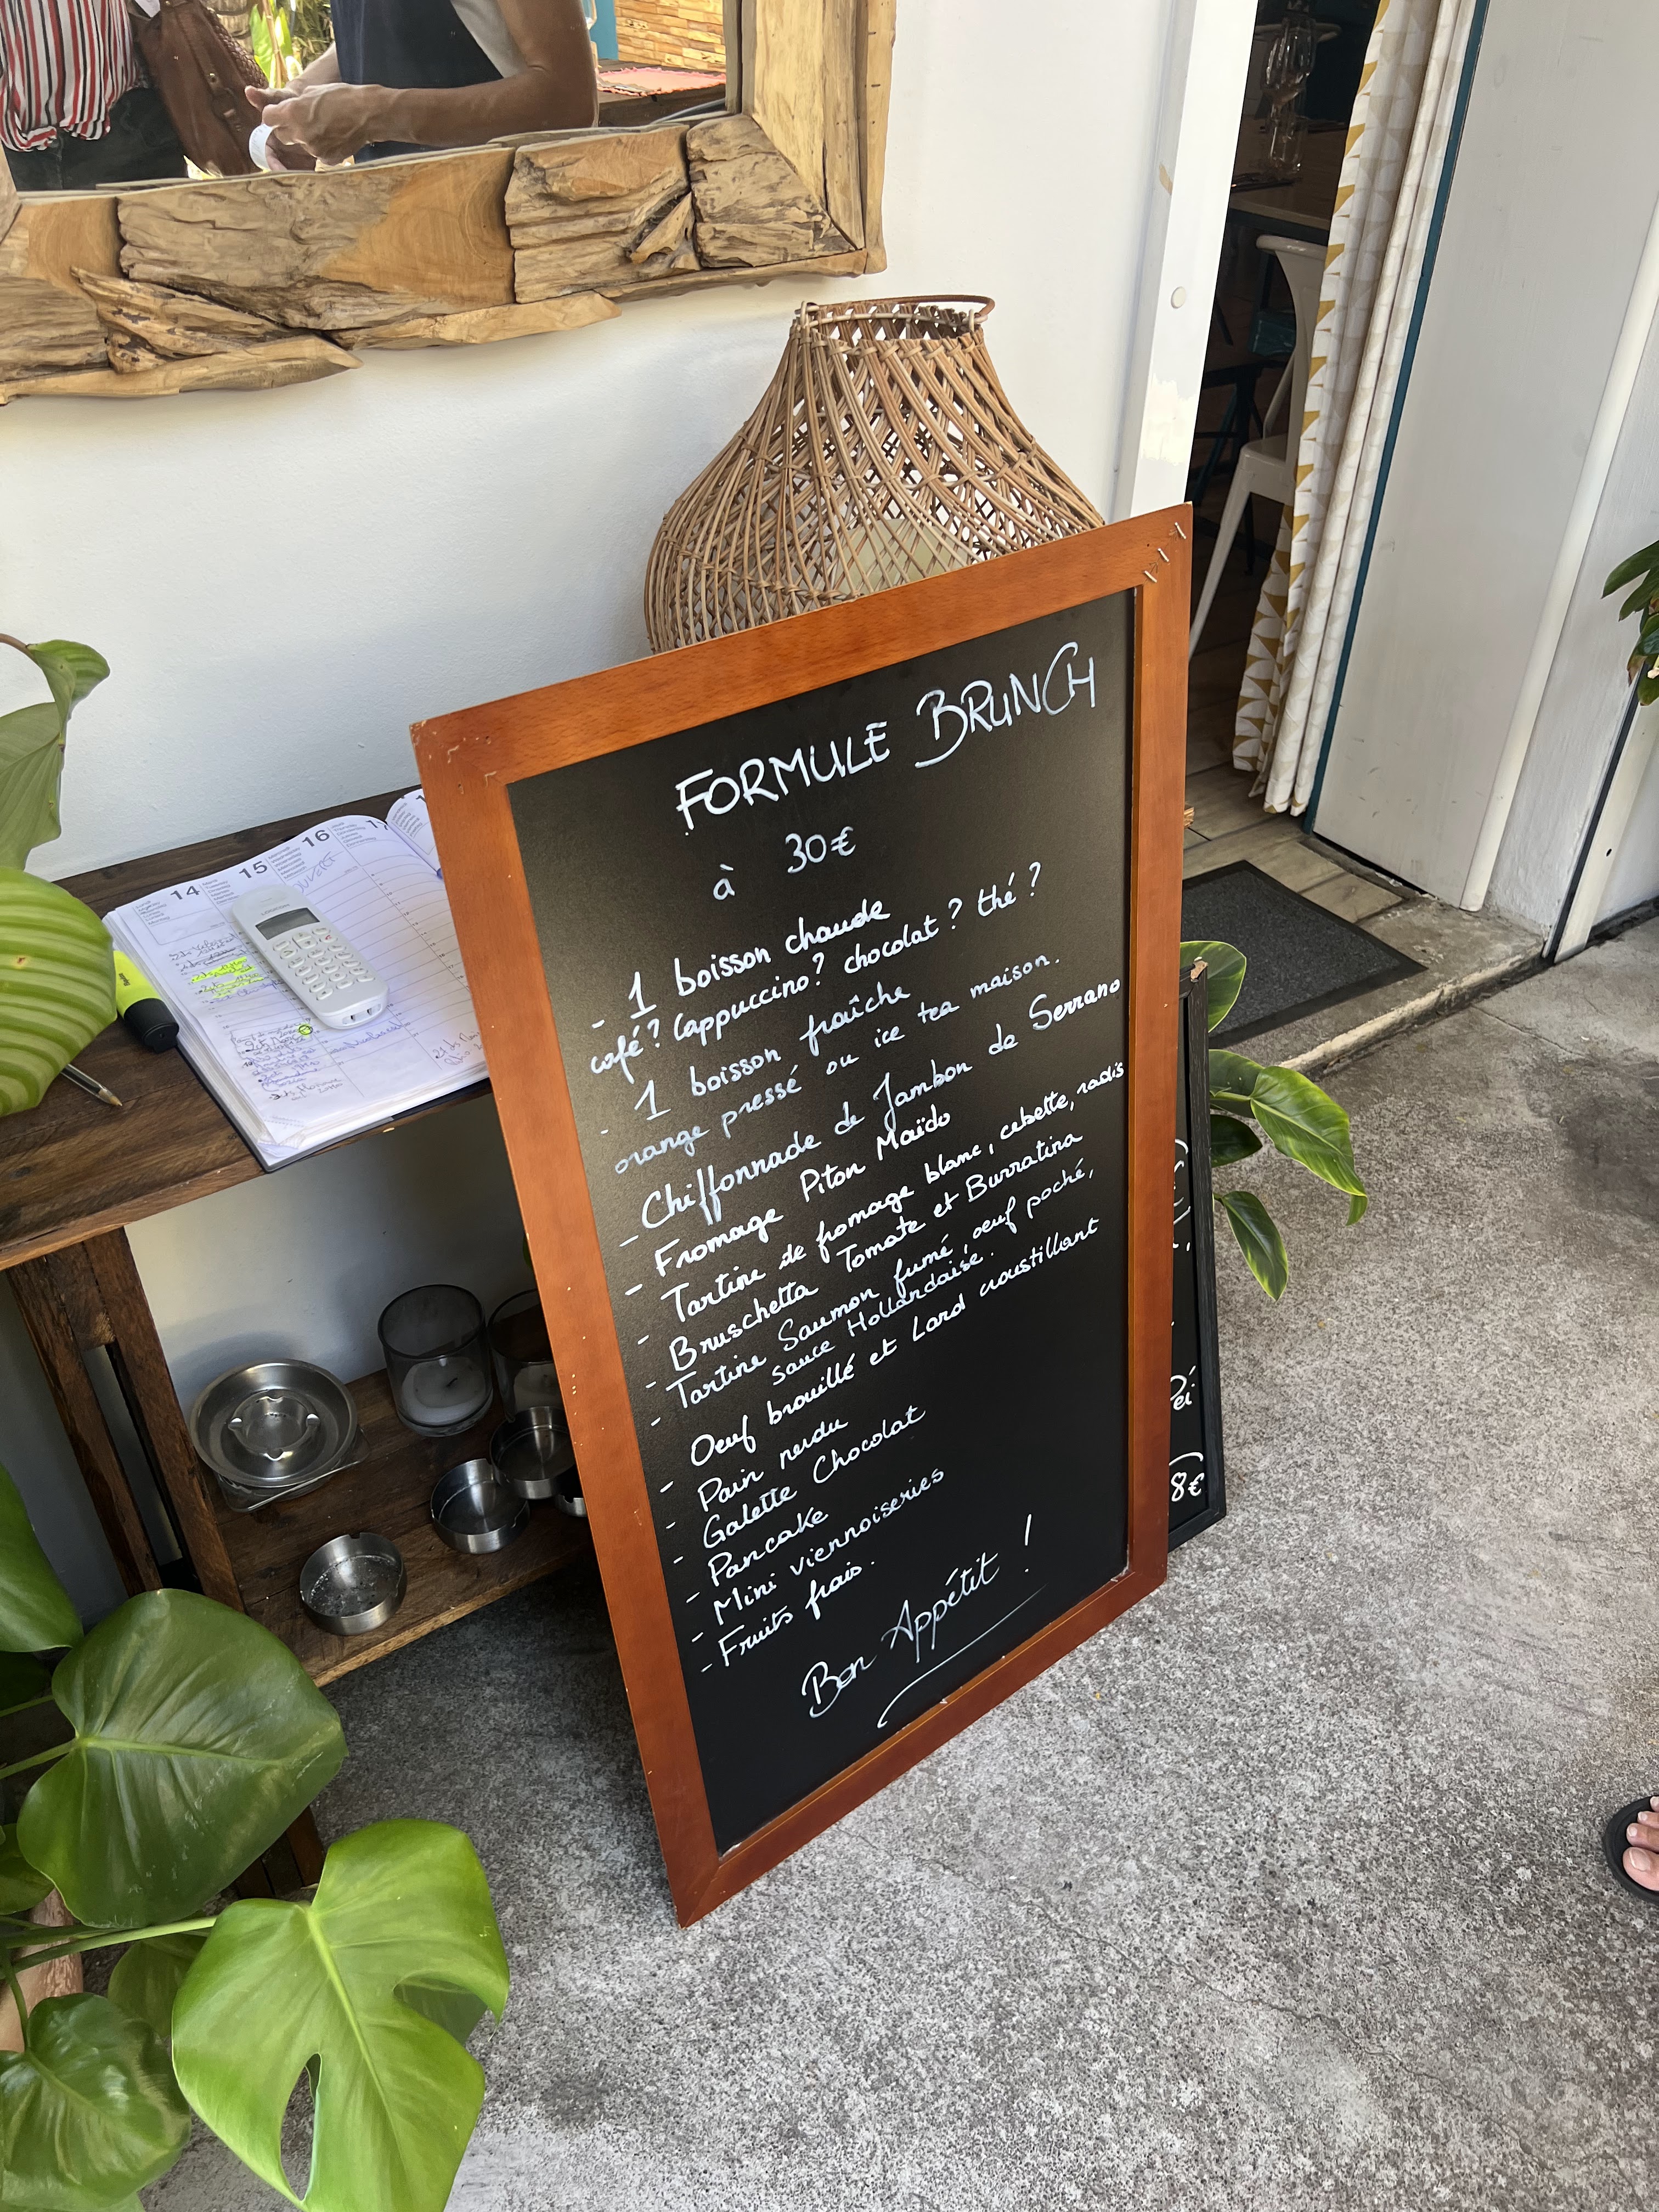 FORMULE BRUNCH
à 30€
- 1 boisson chaude
café? Cappuccino? chocolat? thé?
- 1 boisson fraîche
orange pressé ou ice tea maison.
- Chiffonnade de Jambon de Serrano
- Fromage Piton Maïdo
- Tartine de fromage blanc, cebette, radis
- Bruschetta Tomate et Burratina
- Tartine Saumon fumé, oeuf poché,
sauce Hollandaise.
- Oeuf brouillé et Lard croustillant
- Pain perdu
- Galette Chocolat
- Pancake
- Mini viennoiseries
- Fruits frais.
Bon Appétit !
14
15
16
17
OUVERT
Péi
8€